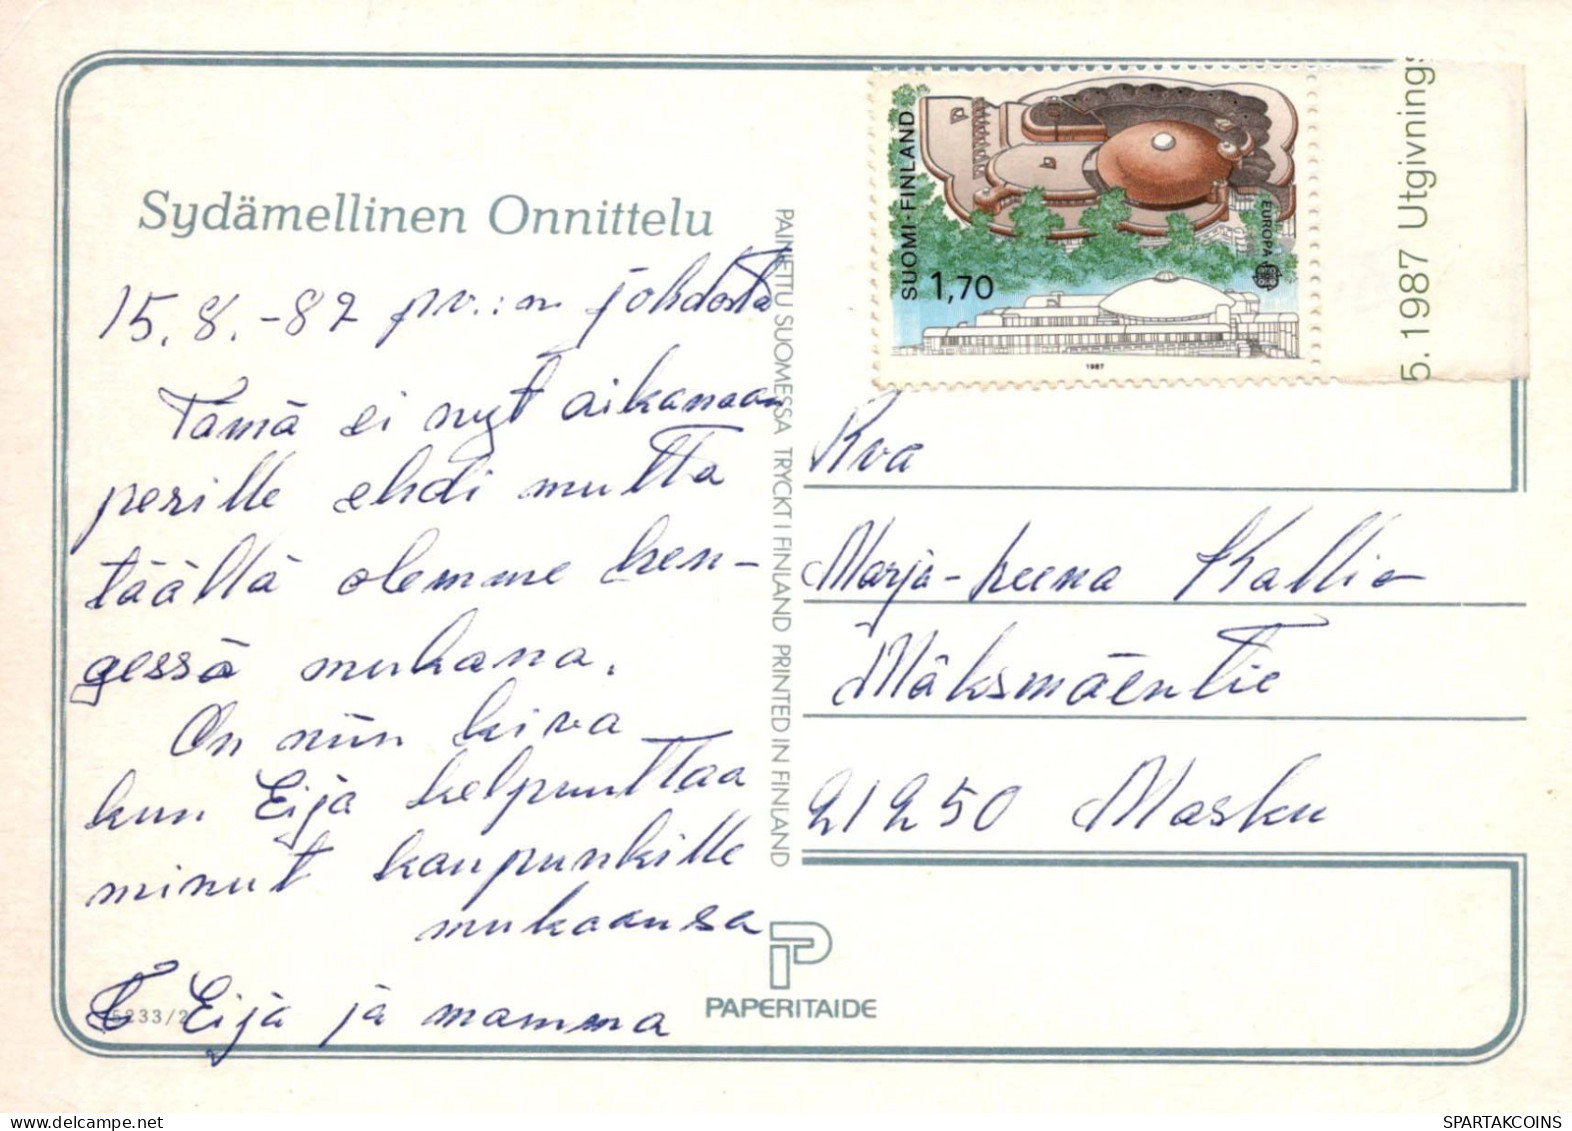 Sydämellinen Onnittelu
15.8.-87 pv.:n johdosta
Tämä ei nyt aikanaan
perille ehdi mutta
täällä olemme hen-
gessä mukana.
On niin kiva
kun Eija helpuuttaa
minut kaupunkille
mukaansa
T Eija ja mamma
5233/2
PAINETTU SUOMESSA TRYCKT I FINLAND PRINTED IN FINLAND
PAPERITAIDE
SUOMI·FINLAND
1,70
EUROPA
1987
5.1987 Utgivnings
Rva
Marja-Leena Kallio
Mäksmäentie
21250 Masku
SPARTAKCOINS
SPARTAKCOINS.COM